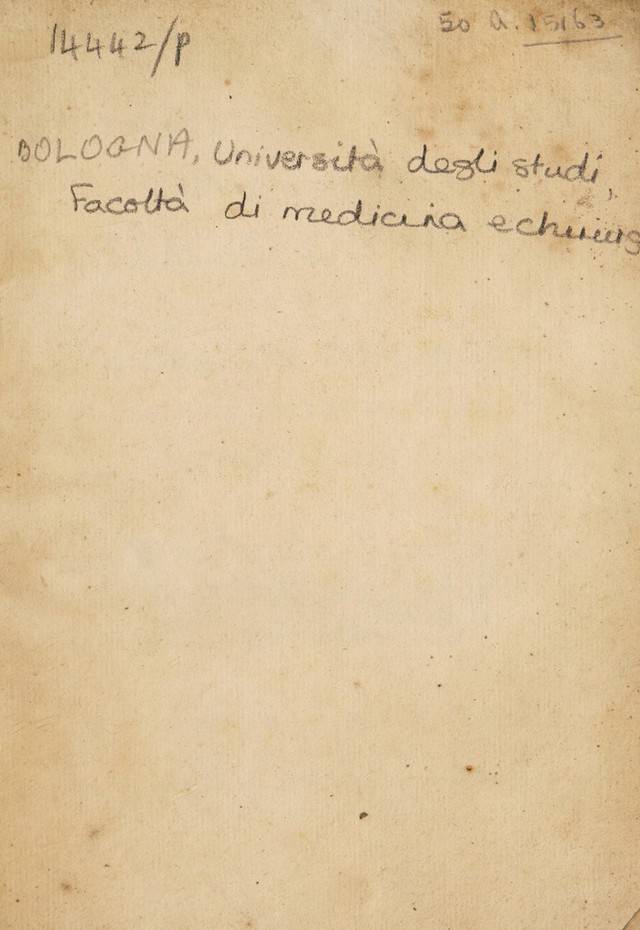 14442/p
50 A. 15163
BOLOGNA, Università degli studi,
Facoltà di medicina e chirurg